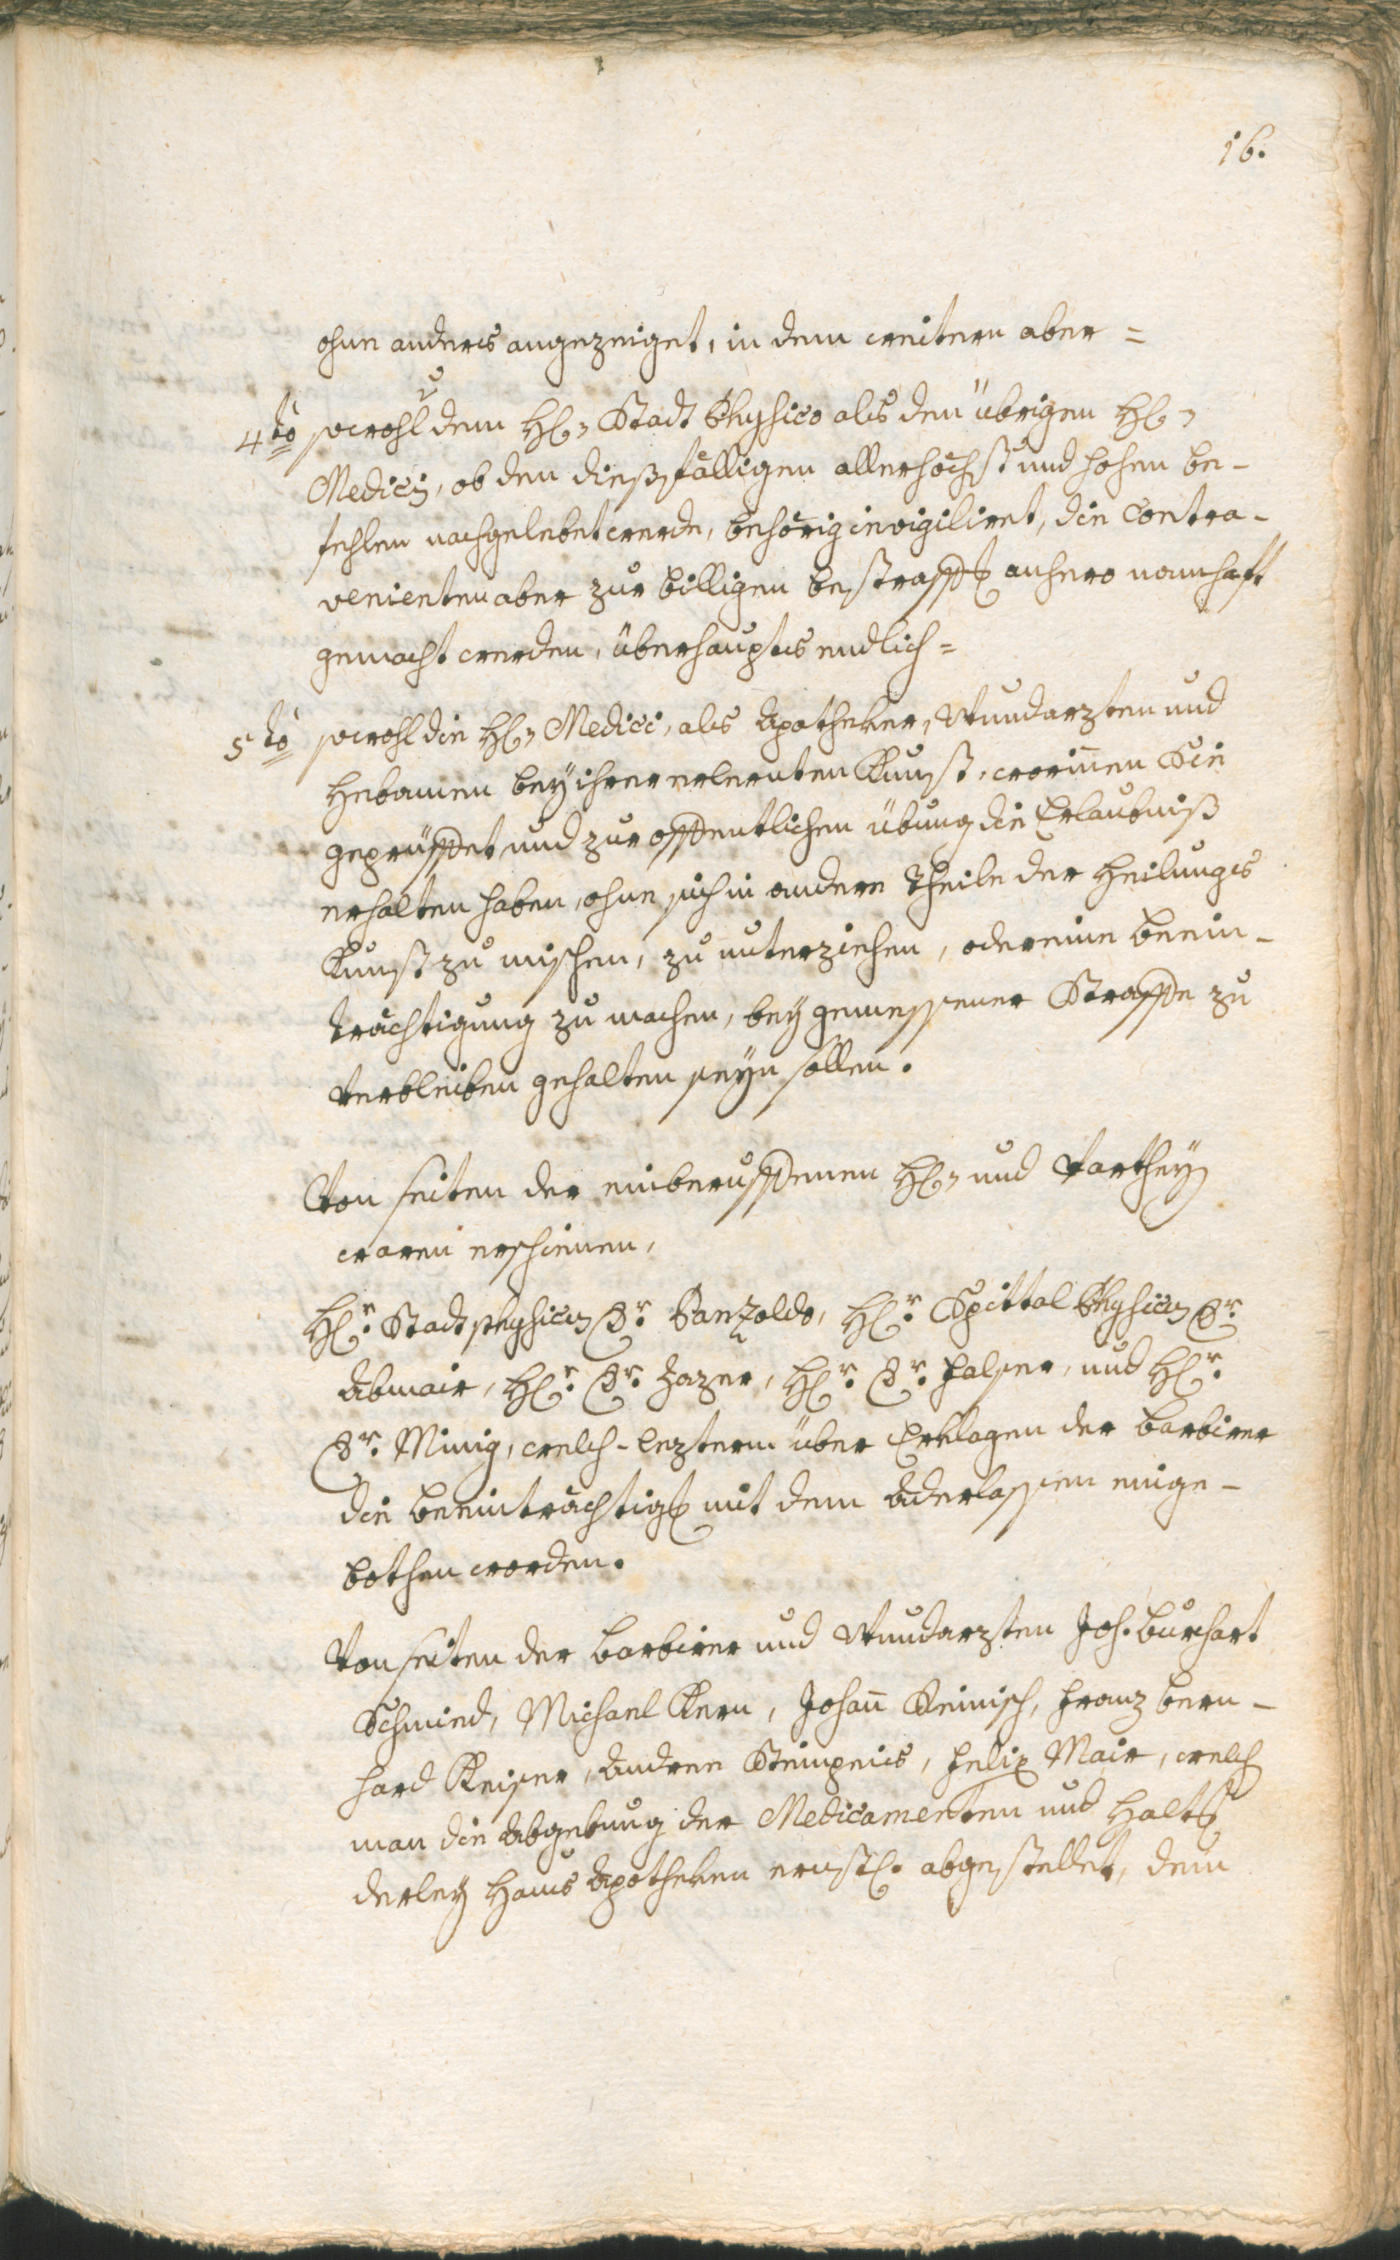 16.
ohne anders angezeiget, in dem weitern aber =
4to sowohl v dem H. Stadt Physico als den übrigen H.
Medicis, ob den dießfälligen allerhöchst und hohen be-
fehlen nachgelebet werde, behörig invigiliret, die Contra-
venienten aber zur billigen bestraffg anhero namhaft
gemacht werden, überhaupts endlich =
5to sowohl die H. Medici, als Apotheker, Wundarzten und
Hebamen bey ihrer erlernten Kunst, worinnen Sie
geprüffet und zur offentlichen übung die Erlaubniß
erhalten haben, ohne sich in andere Theile der Heilungs
Kunst zu mischen, zu unterziehen, oder eine beein-
trächtigung zu machen, bey gemessener Straffe zu
verbleiben gehalten seyn sollen.
Von seiten der einberuffenen H. und Parthey
waren erschienen,
Hr. Stadtphysicus Dr. Panzoldo, Hr. Spittal Physicus Dr.
Abmair, Hr. Dr. Zazer, Hr. Dr. Falser, und Hr.
Dr. Minig, welch-lezterm über Erklagen der barbirer
die beeinträchtigg mit dem Aderlassen einge-
bothen worden.
Von seiten der barbirer und Wundarzten Joh. burchart
Schmied, Michael Kern, Johan Reinisch, Franz bern-
hard Keiser, Andree Steinpeis, Felix Mair, welch
man die Abgebung der Medicamenten und Haltg
derley Haus Apotheken ernstl. abgestellet, dem